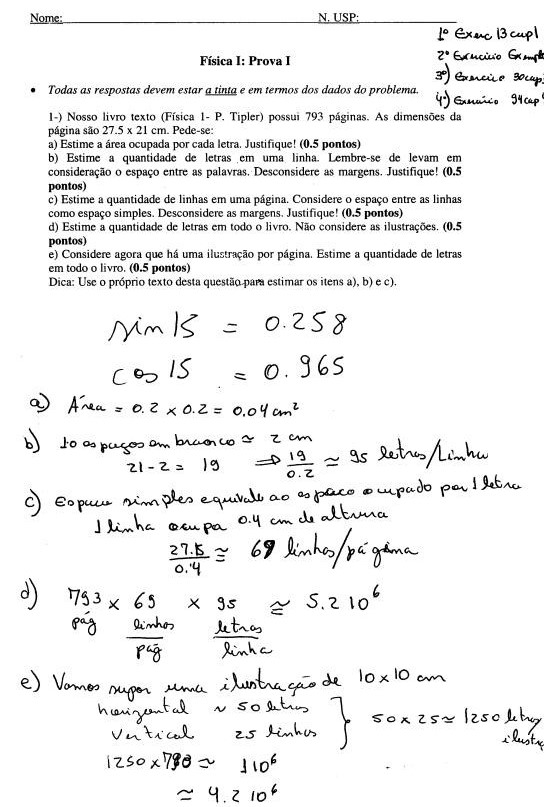 Nome: N. USP:
1º Exerc 13 cap 1
2º Exercício Exemplo
3º) Exercício 30 cap
4º) Exercício 94 cap
Física I: Prova I
• Todas as respostas devem estar a tinta e em termos dos dados do problema.
1-) Nosso livro texto (Física 1- P. Tipler) possui 793 páginas. As dimensões da
página são 27.5 x 21 cm. Pede-se:
a) Estime a área ocupada por cada letra. Justifique! (0.5 pontos)
b) Estime a quantidade de letras em uma linha. Lembre-se de levam em
consideração o espaço entre as palavras. Desconsidere as margens. Justifique! (0.5
pontos)
c) Estime a quantidade de linhas em uma página. Considere o espaço entre as linhas
como espaço simples. Desconsidere as margens. Justifique! (0.5 pontos)
d) Estime a quantidade de letras em todo o livro. Não considere as ilustrações. (0.5
pontos)
e) Considere agora que há uma ilustração por página. Estime a quantidade de letras
em todo o livro. (0.5 pontos)
Dica: Use o próprio texto desta questão para estimar os itens a), b) e c).
sin 15 = 0.258
cos 15 = 0.965
a) Área = 0.2 x 0.2 = 0,04 cm²
b) 10 espaços em branco ≃ 2 cm
21-2 = 19 ⇒ 19/0.2 ≃ 95 letras/linha
c) Espaco simples equivale ao espaco ocupado por 1 letra
1 linha ocupa 0.4 cm de altura
27.5/0.4 ≃ 69 linhas/página
d) 793 x 69 x 95 ≃ 5.2 10⁶
pág linhas letras
pág linha
e) Vamos supor uma ilustração de 10 x 10 cm
horizontal ~ 50 letras
Vertical 25 linhas } 50 x 25 ≃ 1250 letras
1250 x 793 ≃ 1 10⁶
≃ 4.2 10⁶